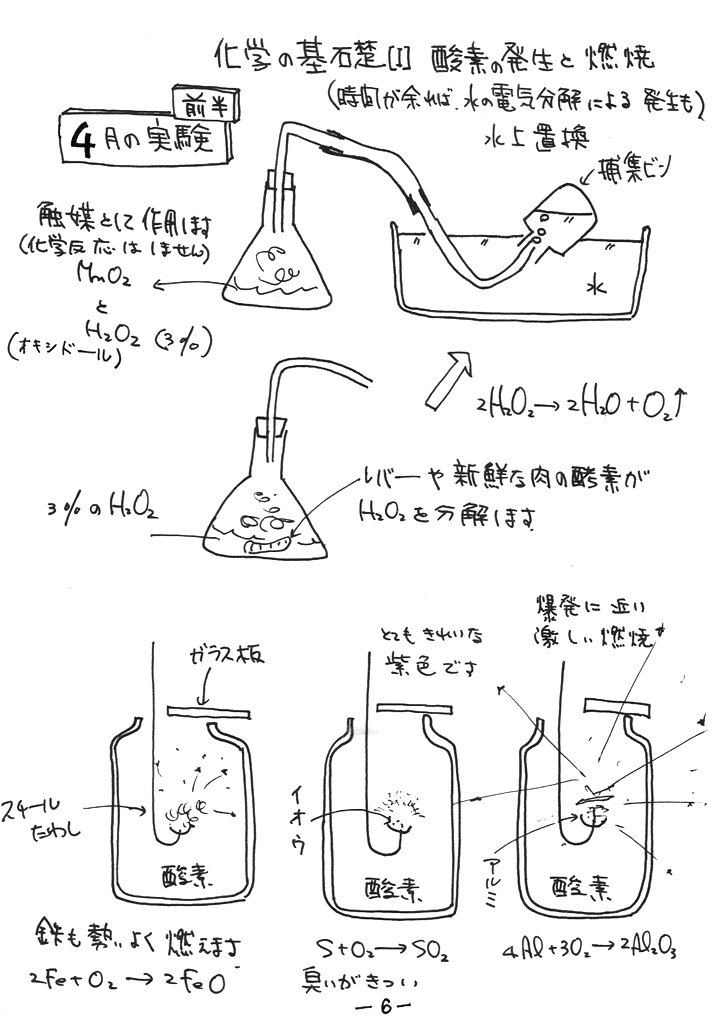 化学の基石楚[I] 酸素の発生と燃焼
(時間が余れば、水の電気分解による発生も)
前半
4月の実験
水上置換
捕集ビン
触媒として作用します
(化学反応はしません)
MnO₂
と
H₂O₂ (3%)
(オキシドール)
水
2H₂O₂→2H₂O+O₂↑
3%のH₂O₂
レバーや新鮮な肉の酵素が
H₂O₂を分解します
ガラス板
スチール
たわし
酸素
鉄も勢いよく燃えます
2Fe+O₂→2FeO
とてもきれいな
紫色です
イオウ
酸素
S+O₂→SO₂
臭いがきつい
爆発に近い
激しい燃焼
アルミ
酸素
4Al+3O₂→2Al₂O₃
－6－